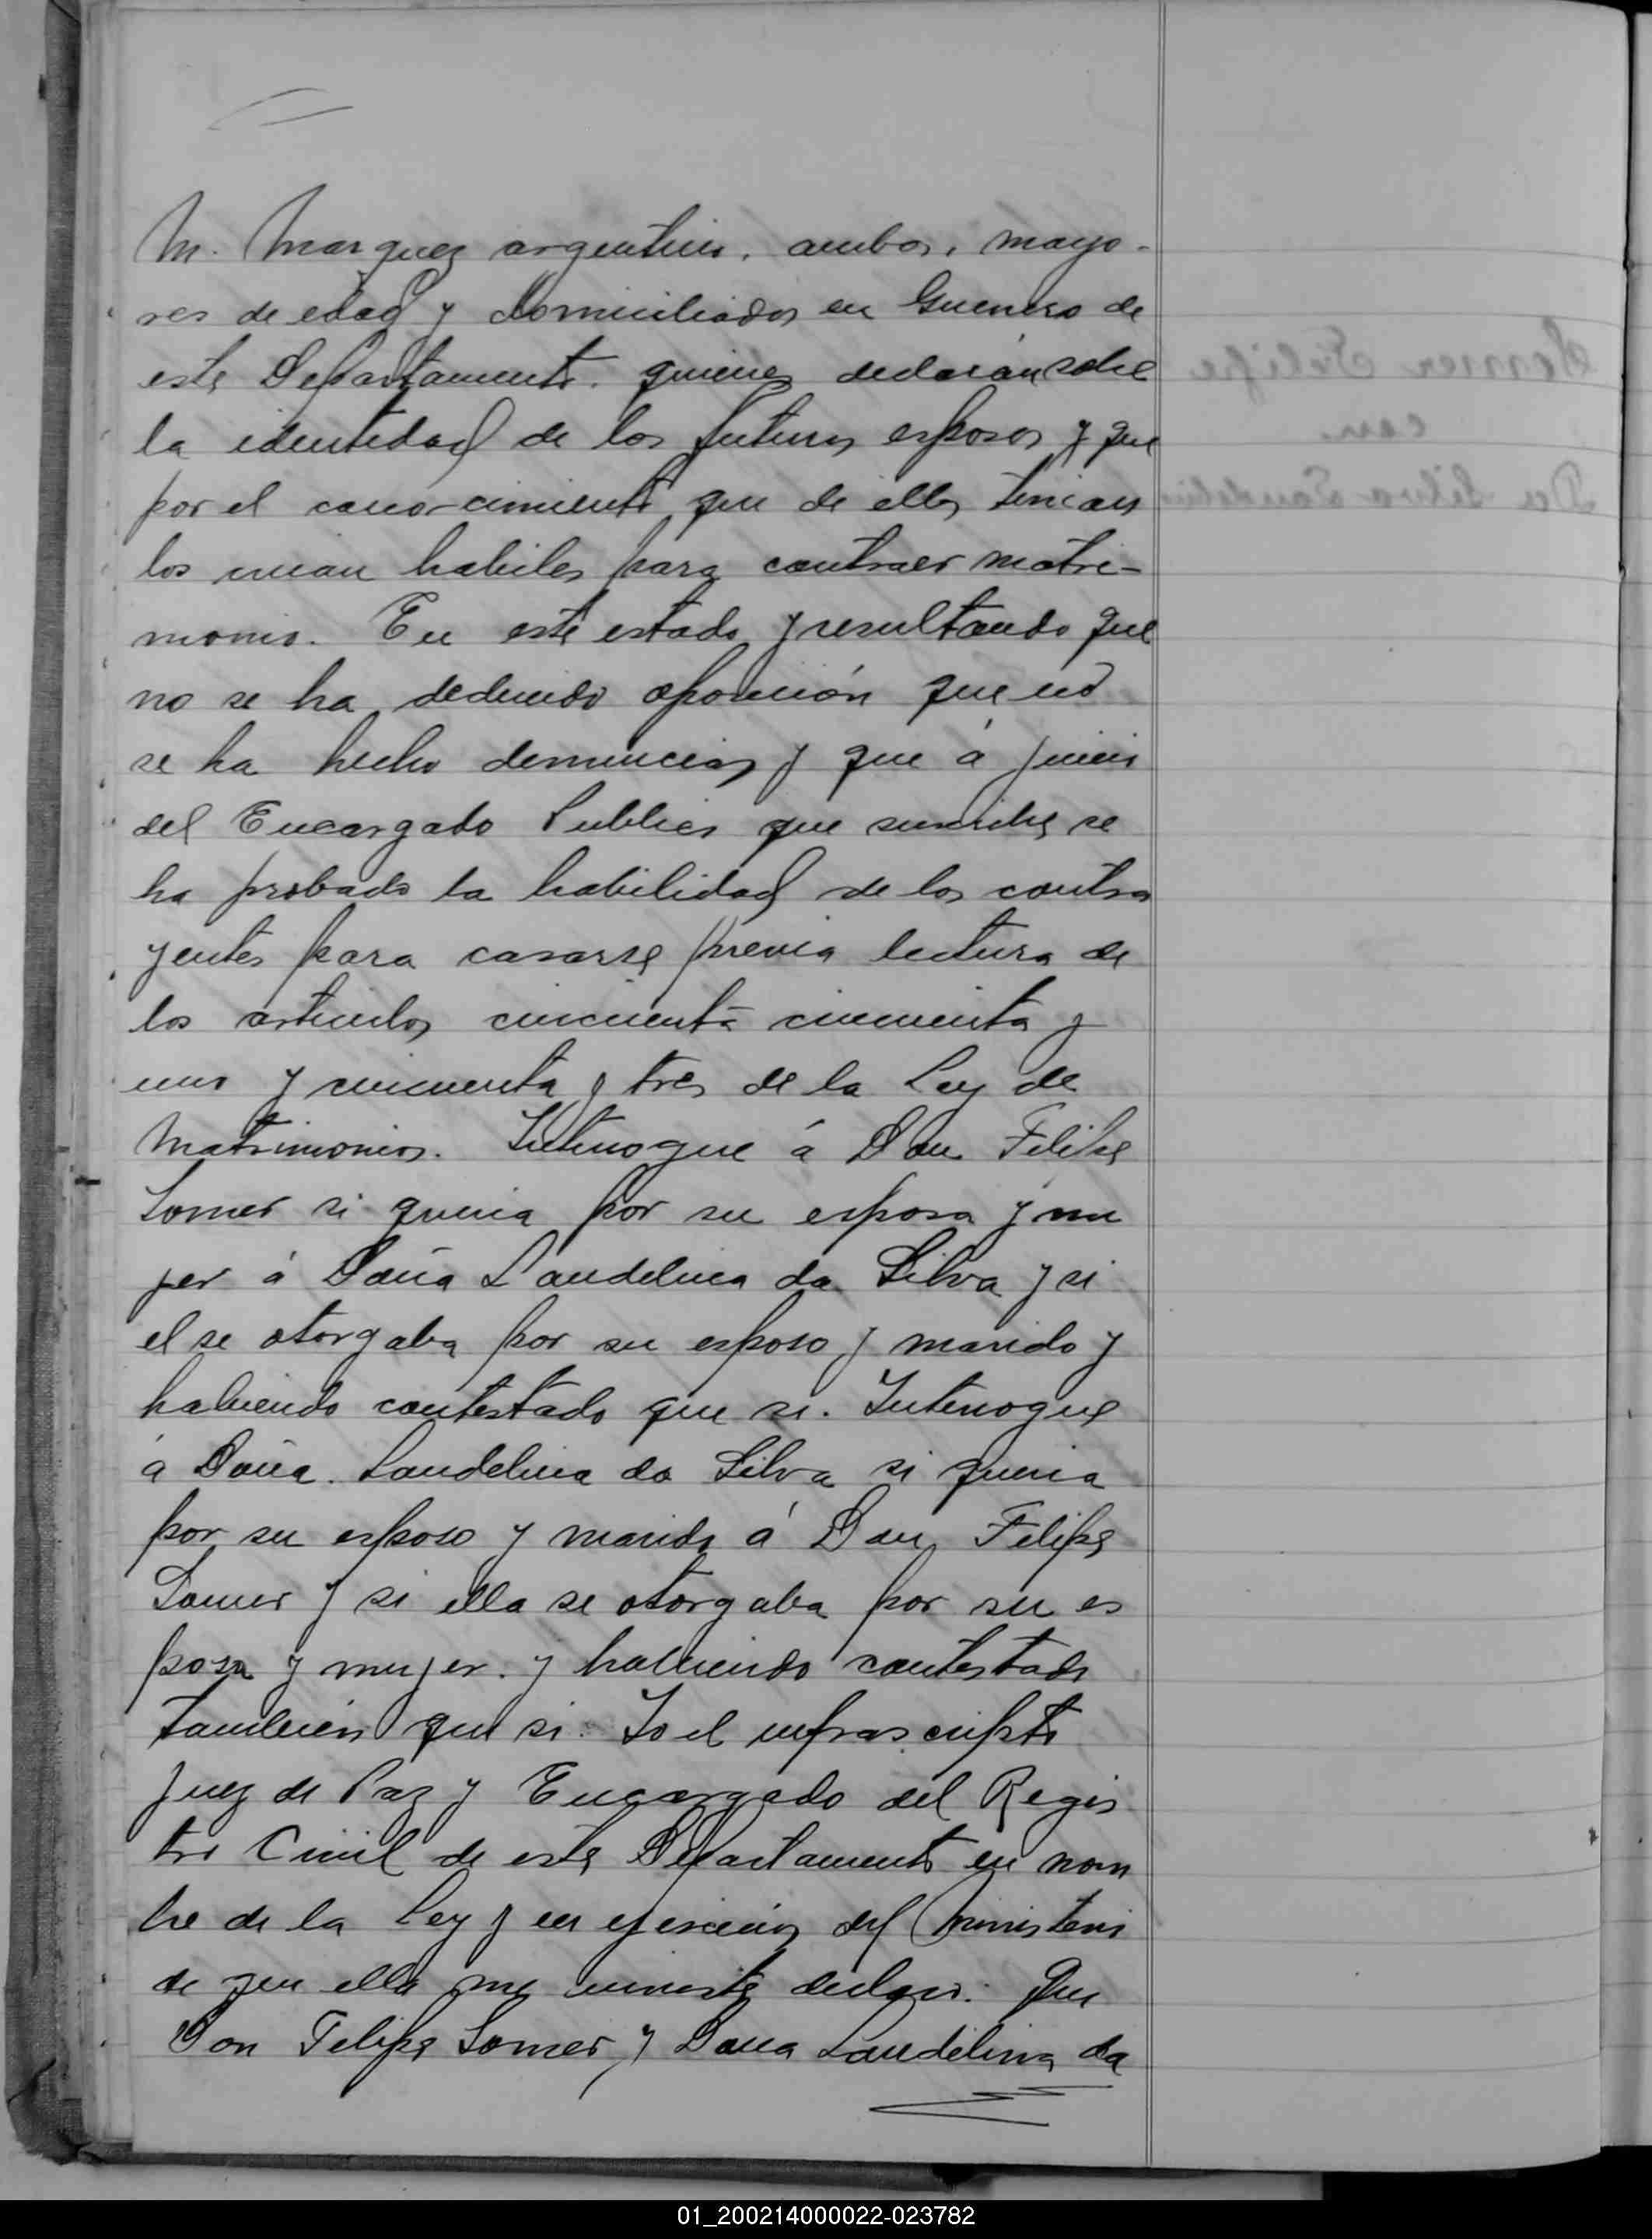 M. Marquez argentino, ambos, mayo-
res de edad y domiciliados en Guerrero de
este Departamento. quienes declarán sobre
la identidad de los futuros esposos y que
por el cono-cimiento que de ellos tenian
los creian habiles para contraer matri-
monio. En este estado y resultando que
no se ha deducido oposición que no
se ha hecho denuncias y que á juicio
del Encargado Publico que suscribe se
ha probado la habilidad de los contra
yentes para casarse previa lectura de
los articulos cincuenta cincuenta y
uno y cincuenta y tres de la Ley de
Matrimonio. Interrogue á Don Felipe
Somer si queria por su esposa y mu
jer á Doña Landelina da Silva y si
el se otorgaba por su esposo y marido y
habiendo contestado que si. Interrogue
á Doña. Landelina da Silva si queria
por su esposo y marido á Don Felipe
Somer y si ella se otorgaba por su es
posa y mujer. y habiendo contestado
tambien que si. Yo el infrascripto
Juez de Paz y Encargado del Regis
tro Civil de este Departamento en nom
bre de la Ley y en ejercicio del Ministerio
de que ella me inviste declaro: Que
Don Felipe Somer y Doña Landelina da
Somer Felipe
con
Da Silva Landelina
01_200214000022-023782